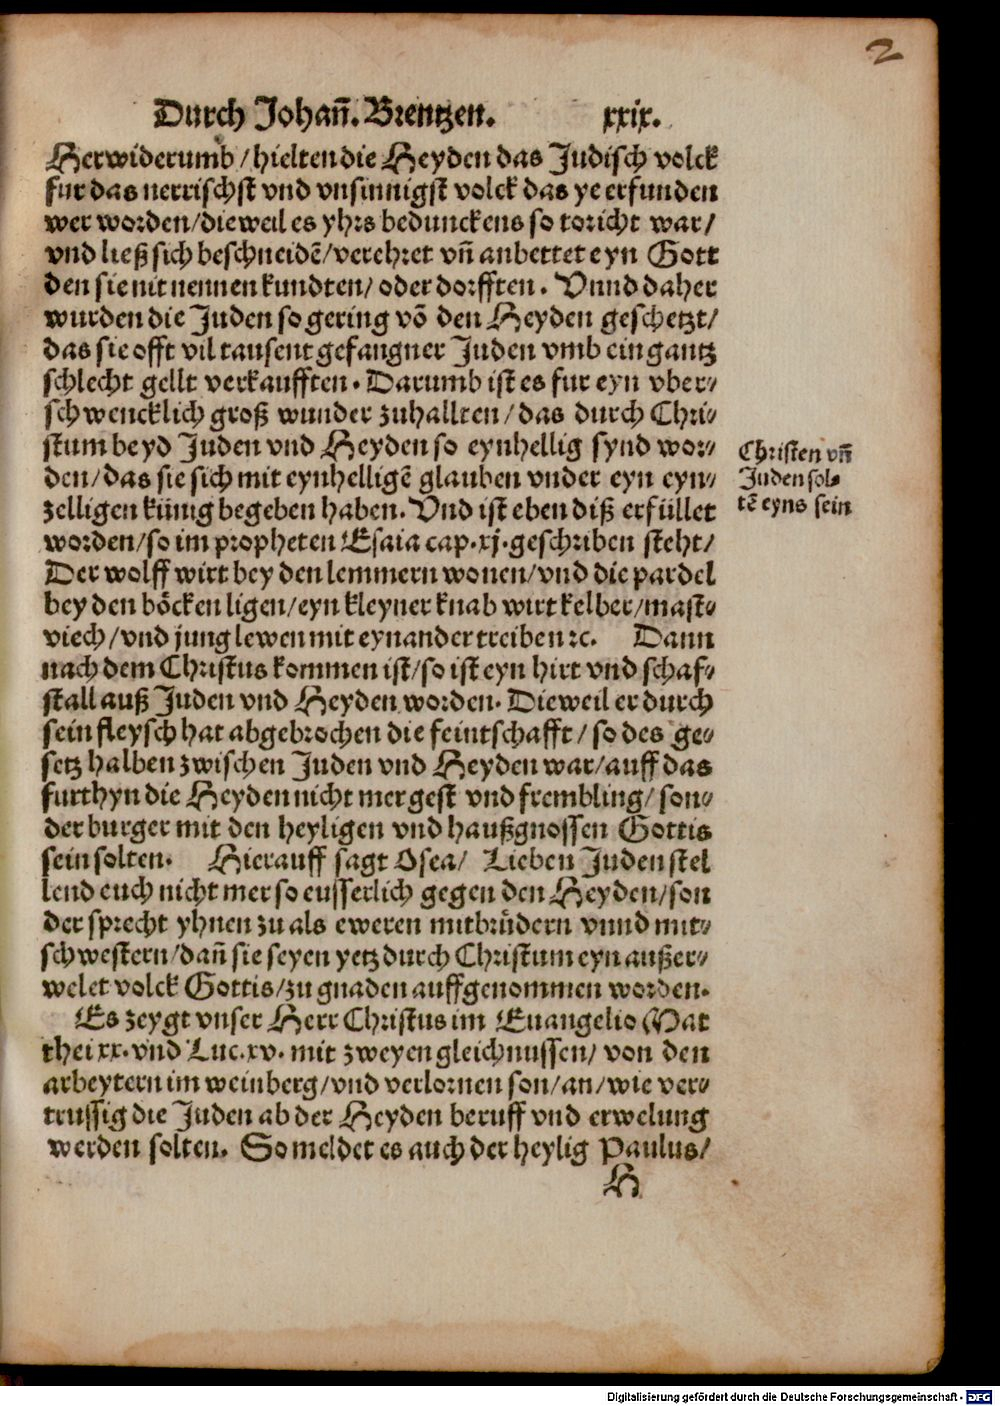 2
Durch Johañ. Brentzen. xxix.
Herwiderumb / hielten die Heyden das Judisch volck
fur das nerrischst vnd vnsinnigst volck das ye erfunden
wer worden/dieweil es yhrs beduncke​ns so toricht war/
vnd ließ sich beschneidẽ/verehret vñ anbettet eyn Gott
den sie nit nennen kundten/ oder dorfften. Vnnd daher
wurden die Juden so gering võ den Heyden geschetzt/
das sie offt vil tausent gefangner Juden vmb ein gantz
schlecht gellt verkaufften. Darumb ist es fur eyn vber⸗
schwencklich groß wunder zuhallten/das durch Chri⸗
stum beyd Juden vnd Heyden so eynhellig synd wor⸗
den/das sie sich mit eynhelligẽ glauben vnder eyn eyn⸗
zelligen künig begeben haben. Vnd ist eben diß erfüllet
worden/so im propheten Esaia cap.xj.geschriben steht/
Der wolff wirt bey den lemmern wonen/vnd die pardel
bey den böcken ligen/eyn kleyner knab wirt kelber/mast⸗
viech/vnd jung lewen mit eynander treiben ⁊c. Dann
nach dem Christus kommen ist/so ist eyn hirt vnd schaf⸗
stall auß Juden vnd Heyden worden. Dieweil er durch
sein fleysch hat abgebrochen die feintschafft/so des ge⸗
setz halben zwischen Juden vnd Heyden war/auff das
furthyn die Heyden nicht mer gest vnd frembling/son⸗
der burger mit den heyligen vnd haußgnossen Gottis
sein solten. Hierauff sagt Osea/ Lieben Juden stel
lend euch nicht mer so eusserlich gegen den Heyden/son
der sprecht yhnen zu als eweren mitbrůdern vnnd mit⸗
schwestern/dañ sie seyen yetz durch Christum eyn außer⸗
welet volck Gottis/zu gnaden auffgenommen worden.
Es zeygt vnser Herr Christus im Euangelio Mat
thei xx. vnd Luc.xv. mit zweyen gleichnussen/ von den
arbeytern im weinberg/vnd verlornen son/an/wie ver⸗
trussig die Juden ab der Heyden beruff vnd erwelung
werden solten. So meldet es auch der heylig Paulus/
H
Christen vñ
Juden sol⸗
tẽ eyns sein
Digitalisierung gefördert durch die Deutsche Forschungsgemeinschaft - DFG